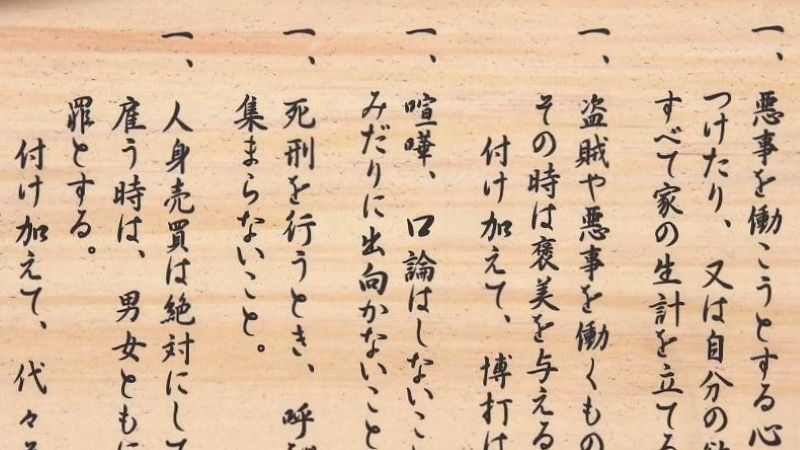 一、悪事を働こうとする心
つけたり、又は自分の
すべて家の生計を立てる
一、盗賊や悪事を働くもの
その時は褒美を与える
付け加えて、博打は
一、喧嘩、口論はしないこ
みだりに出向かないこと
一、死刑を行うとき、呼
集まらないこと。
一、人身売買は絶対にして
雇う時は、男女ともに
罪とする。
付け加えて、代々